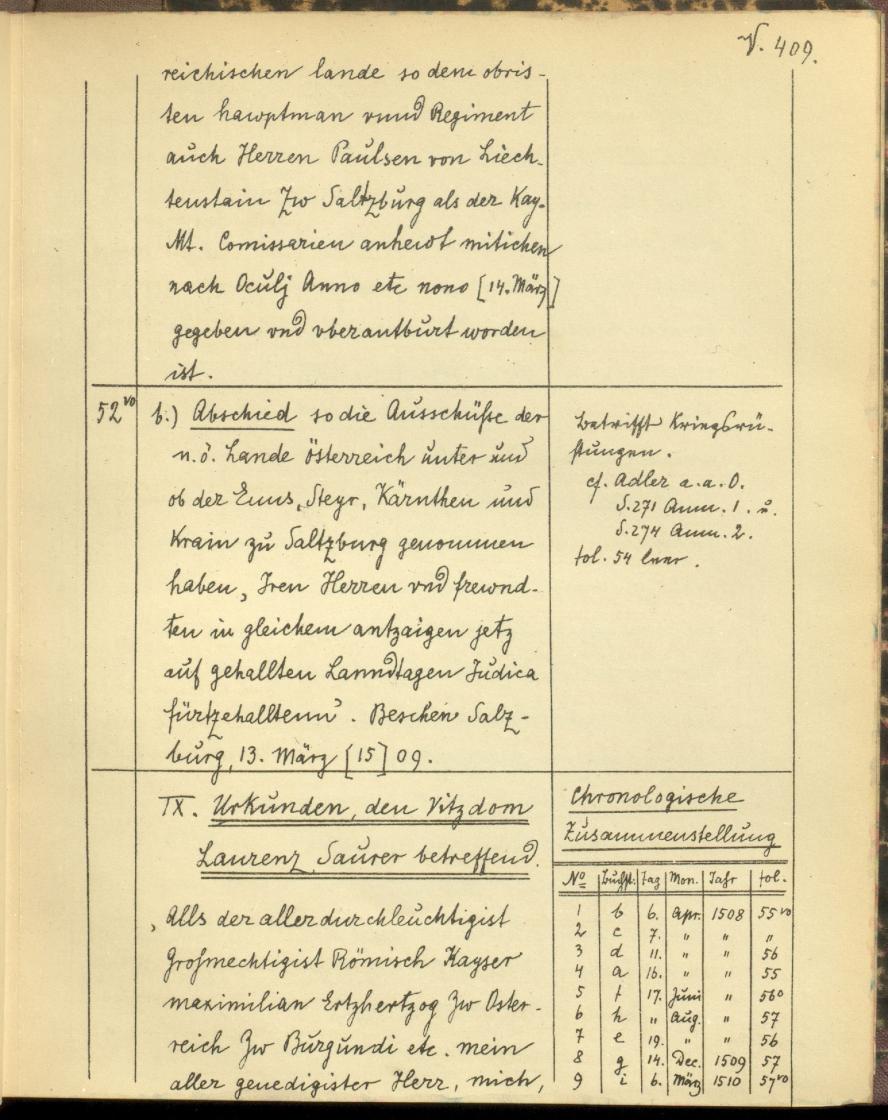 V. 409.
reichischen lande so dem obris-
ten hawptman vnnd Regiment
auch Herren Paulsen von Liech-
tenstain Zw Saltzburg als der Kay.
Mt. Comissarien anhewt mitichen
nach Oculj Anno etc nono [14. März]
gegeben vnd vberantburt worden
ist.
52vo
b.) Abschied so die Ausschüsse der
n. ö. Lande Österreich unter und
ob der Enns, Steyr, Kärnthen und
Krain zu Saltzburg genommen
haben, Iren Herren vnd frewnd-
ten in gleichem antzaigen jetz
auf gehallten Lanndtagen Judica
fürtzehalltenn. Beschen Salz-
burg, 13. März [15]09.
betrifft Kriegsrü-
stungen.
cf. Adler a. a. O.
S. 271 Anm. 1. u.
S. 274 Anm. 2.
fol. 54 leer.
IX. Urkunden, den Vitzdom
Laurenz Saurer betreffend.
, Alls der allerdurchleuchtigist
Grosmechtigist Römisch Kayser
maximilian Ertzhertzog Zw Oster-
reich Zw Burgundi etc. mein
aller genedigister Herr, mich,
Chronologische
Zusammenstellung
No Buchst. Tag Mon. Jahr fol.
1 b 6. Apr. 1508 55vo
2 c 7. " " "
3 d 11. " " 56
4 a 16. " " 55
5 f 17. Juni " 56o
6 h " Aug. " 57
7 e 19. " " 56
8 g 14. Dec. 1509 57
9 i 6. März 1510 57vo